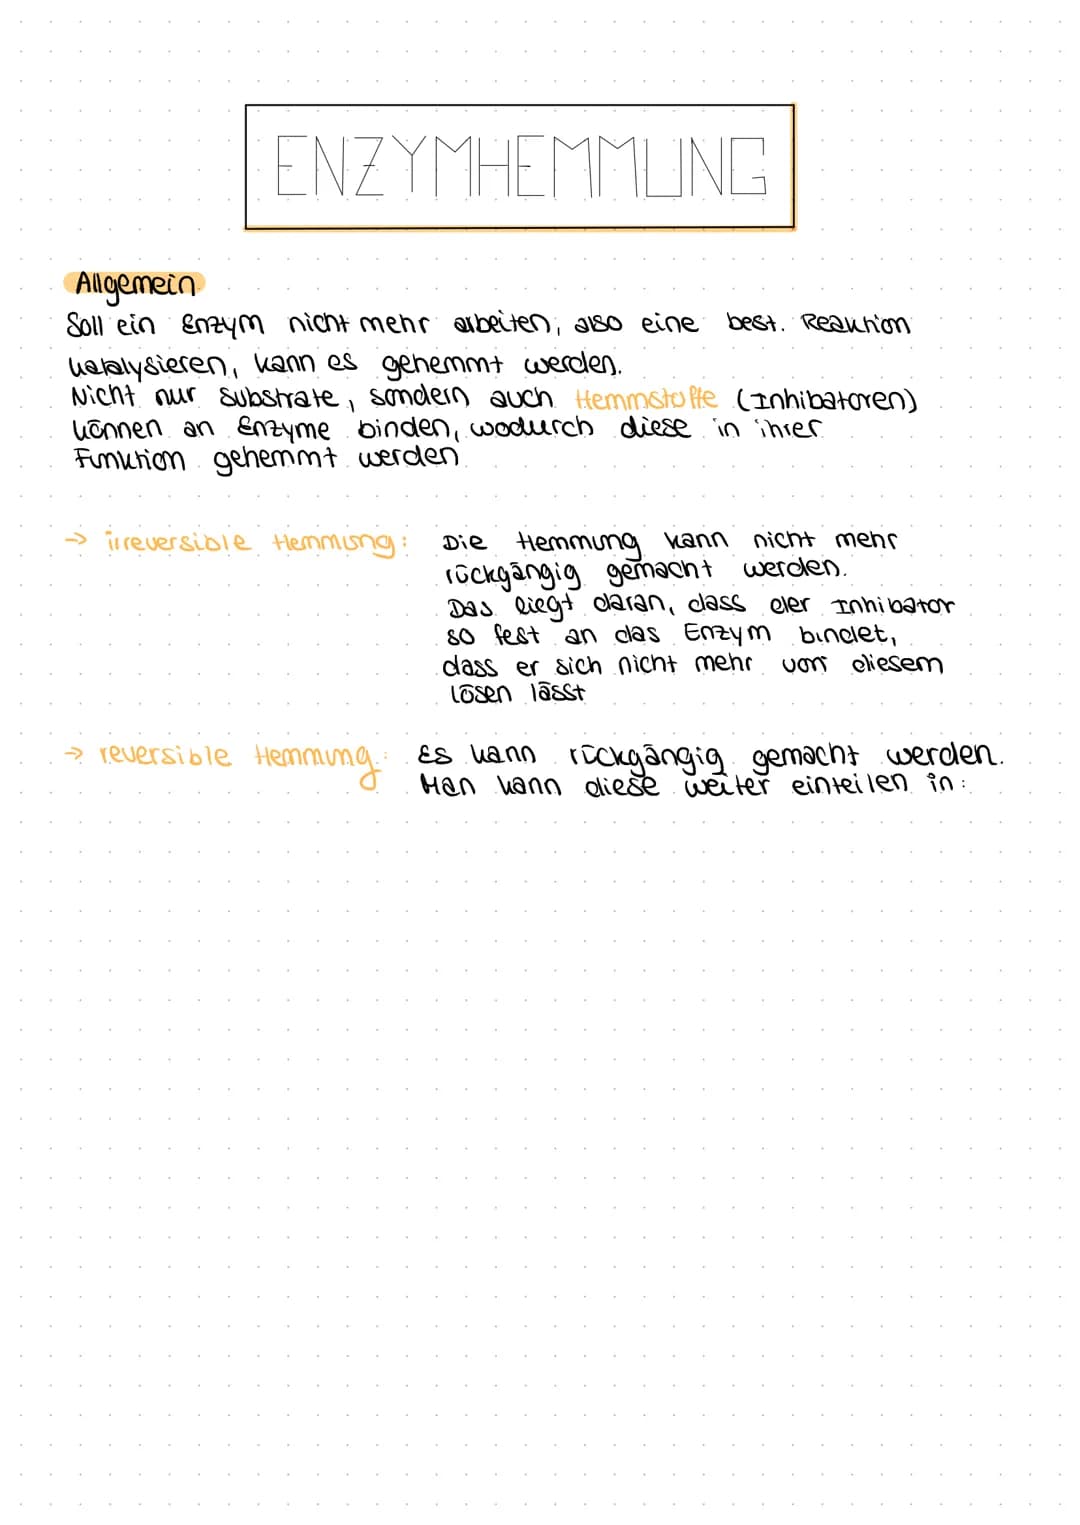 ENZYMHEMMUNG
Allgemein
Soll ein Enzym nicht mehr arbeiten, also eine best. Reaktion
katalysieren, kann es gehemmt werden.
Nicht nur Substrate, sondern auch Hemmstoffe (Inhibatoren)
können an Enzyme binden, wodurch diese in ihrer
Funktion gehemmt werden
→ irreversible Hemmung: Die Hemmung kann nicht mehr
rückgängig gemacht werden.
Das liegt daran, dass der Inhibator
so fest an das Enzym bindet,
dass er sich nicht mehr von diesem
lösen lässt
→ reversible Hemmung: Es kann rückgängig gemacht werden.
Man kann diese weiter einteilen in: